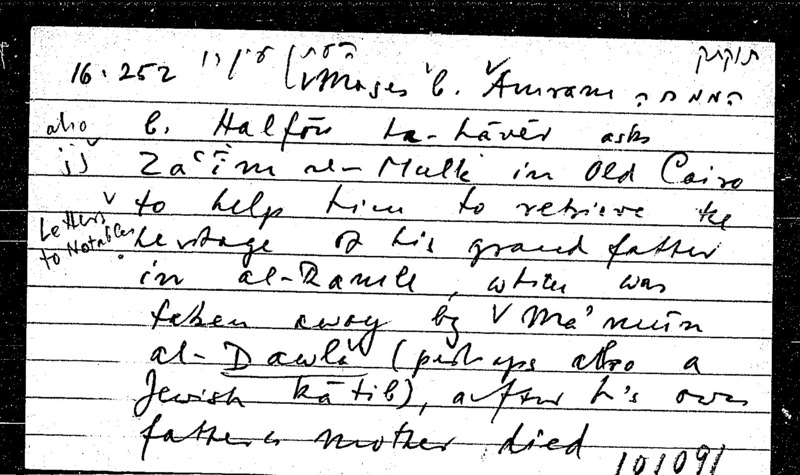 16.252 Moses b. Amram
b. Halfōn ha-hāvēr asks
also
Zaʿīm al-Mulk in Old Cairo
to help him to retrieve the
Letters
to Notables
heritage of his grand father
in al-Ramle, which was
taken away by Ma'mūn
al-Dawla (perhaps also a
Jewish kātib), after h's own
father's mother died
101091